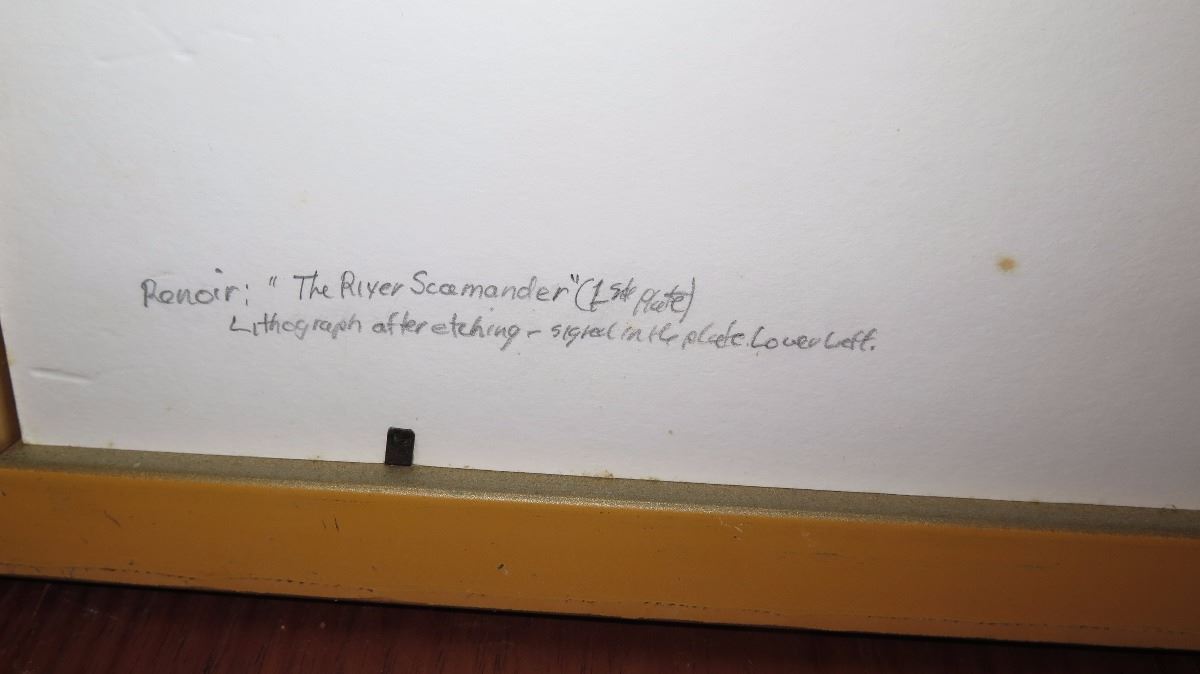 Renoir: "The River Scamander" (1st Plate)
Lithograph after etching - signed in the plate. Lower Left.